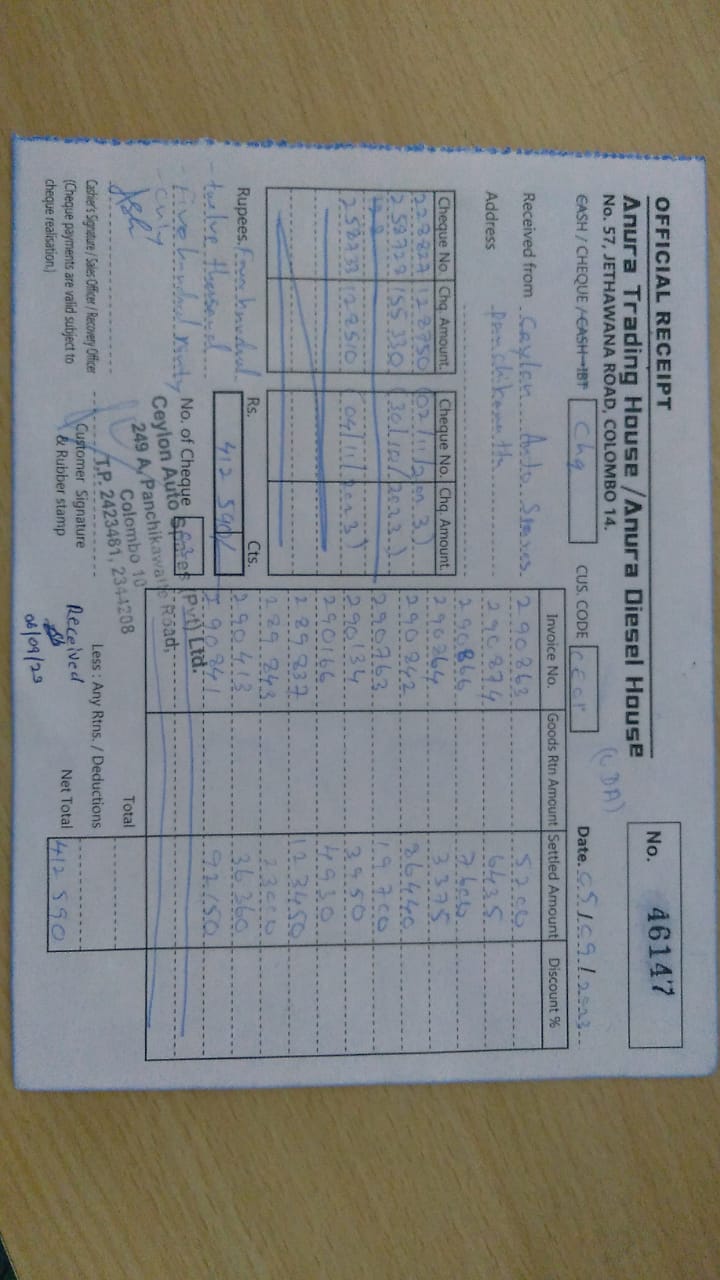 OFFICIAL RECEIPT
Anura Trading House / Anura Diesel House
No. 57, JETHAWANA ROAD, COLOMBO 14.
No. 46147
CASH / CHEQUE / CASH-IBT
Chq
CUS. CODE
(CDA)
Date. 05/09/2023
Received from Ceylon Auto Spares
Address Panchikawatta
Cheque No. Chq. Amount. Cheque No. Chq. Amount.
128750 (02/11/2023)
155330 (30/10/2023)
128510 (04/11/2023)
Rupees. Four hundred
twelve thousand
five hundred ninty
only
Rs. Cts.
412 590/
No. of Cheque
Ceylon Auto Spares (Pvt) Ltd.
249 A, Panchikawatte Road,
Colombo 10
T.P. 2423481, 2344208
Cashier's Signature / Sales Officer / Recovery Officer
(Cheque payments are valid subject to
cheque realisation.)
Customer Signature
& Rubber stamp
Invoice No. Goods Rtn Amount Settled Amount Discount %
290863 5200
290874 6435
290866 7600
290264 3375
290242
290763 19700
290134 3950
290166 4930
289837 123450
289843 23000
290413 36360
290841 92150
Total
Less : Any Rtns. / Deductions
Net Total 412 590
Received
06/09/23